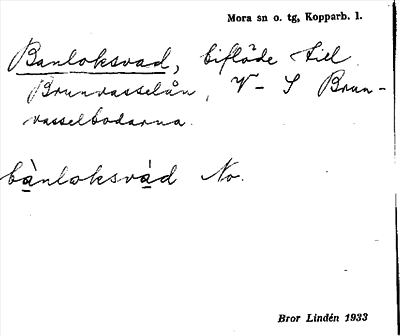 Mora sn o. tg, Kopparb. l.
Banloksvad, biflöde till
Brunvasselån, V-S Brun-
vasselbodarna.
bànloksvàd No.
Bror Lindén 1933